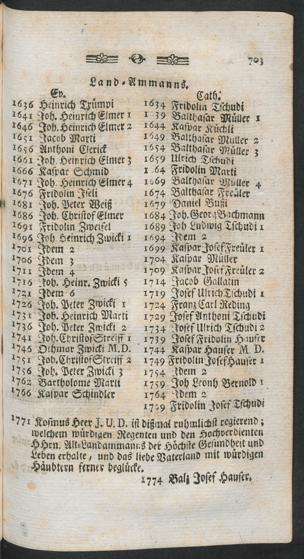 703
Land-Ammanns.
Ev. Cath.
1636 Heinrich Trümpi 1634 Fridolin Tschudi
1641 Joh. Heinrich Elmer 1 1639 Balthasar Müller 1
1646 Joh. Heinrich Elmer 2 1644 Kaspar Küchli
1651 Jacob Marti 1649 Balthasar Müller 2
1656 Anthoni Clerick 1654 Balthasar Müller 3
1661 Joh. Heinrich Elmer 3 1659 Ulrich Tschudi
1666 Kaspar Schmid 1664 Fridolin Marti
1671 Joh. Heinrich Elmer 4 1669 Balthasar Müller 4
1676 Fridolin Iseli 1674 Balthasar Freüler
1681 Joh. Peter Weiß 1679 Daniel Bußi
1686 Joh. Christof Elmer 1684 Joh. Georg Bachmann
1691 Fridolin Zweifel 1689 Joh Ludwig Tschudi 1
1696 Joh Heinrich Zwicki 1 1694 Idem 2
1701 Idem 2 1699 Kaspar Josef Freüler 1
1706 Idem 3 1704 Kaspar Müller
1711 Idem 4 1709 Kaspar Josef Freüler 2
1716 Joh. Heinr. Zwicki 5 1714 Jacob Gallatin
1721 Idem 6 1719 Josef Ulrich Tschudi 1
1726 Joh. Peter Zwicki 1 1724 Franz Carl Reding
1731 Joh. Heinrich Marti 1729 Josef Anthoni Tschudi
1736 Joh. Peter Zwicki 2 1734 Josef Ulrich Tschudi 2
1741 Joh. Christof Streiff 1 1739 Josef Fridolin Hauser
1746 Othmar Zwicki M.D. 1744 Kaspar Hauser M. D.
1751 Joh. Christof Streiff 2 1749 Fridolin Josef Hauser 1
1756 Joh. Peter Zwicki 3 1754 Idem 2
1762 Bartholome Marti 1759 Joh Leonh Bernold 1
1766 Kaspar Schindler 1764 Idem 2
1769 Fridolin Josef Tschudi
1771 Kosmus Heer J. U. D. ist dißmal ruhmlichst regierend;
welchem würdigen Regenten und den Hochverdienten
HHrn. Alt-Landammanns der Höchste Gesundheit und
Leben erhalte, und das liebe Vaterland mit würdigen
Häubtern ferner beglücke.
1774 Balz Josef Hauser.